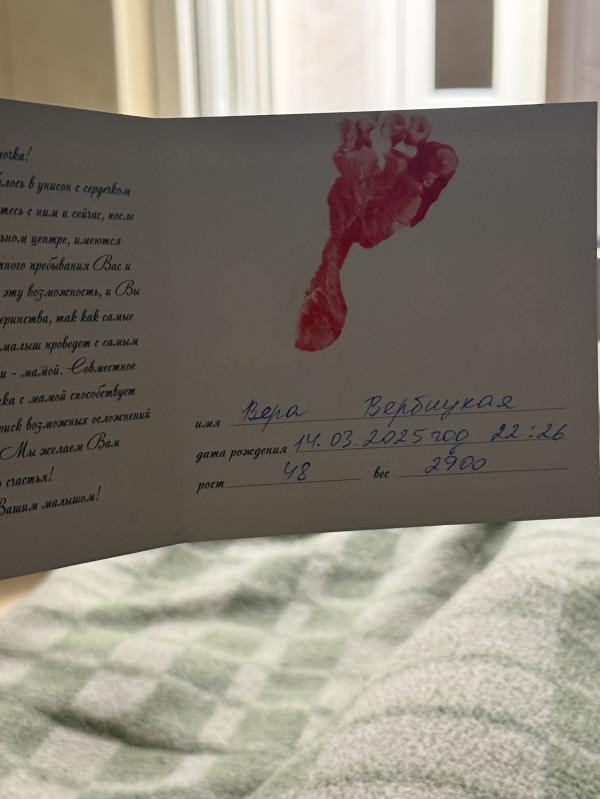 лось в унисон с сердечком
тесь с ним и сейчас, после
ном центре, имеются
ного пребывания Вас и
эту возможность, и Вы
так как самые
малыш проведет с самым
и - мамой. Совместное
ка с мамой способствует
риск возможных осложнений
Мы желаем Вам
счастья!
Вашим малышом!
имя Вера Вербицкая
дата рождения 14.03.2025 год 22:26
рост 48 вес 2900